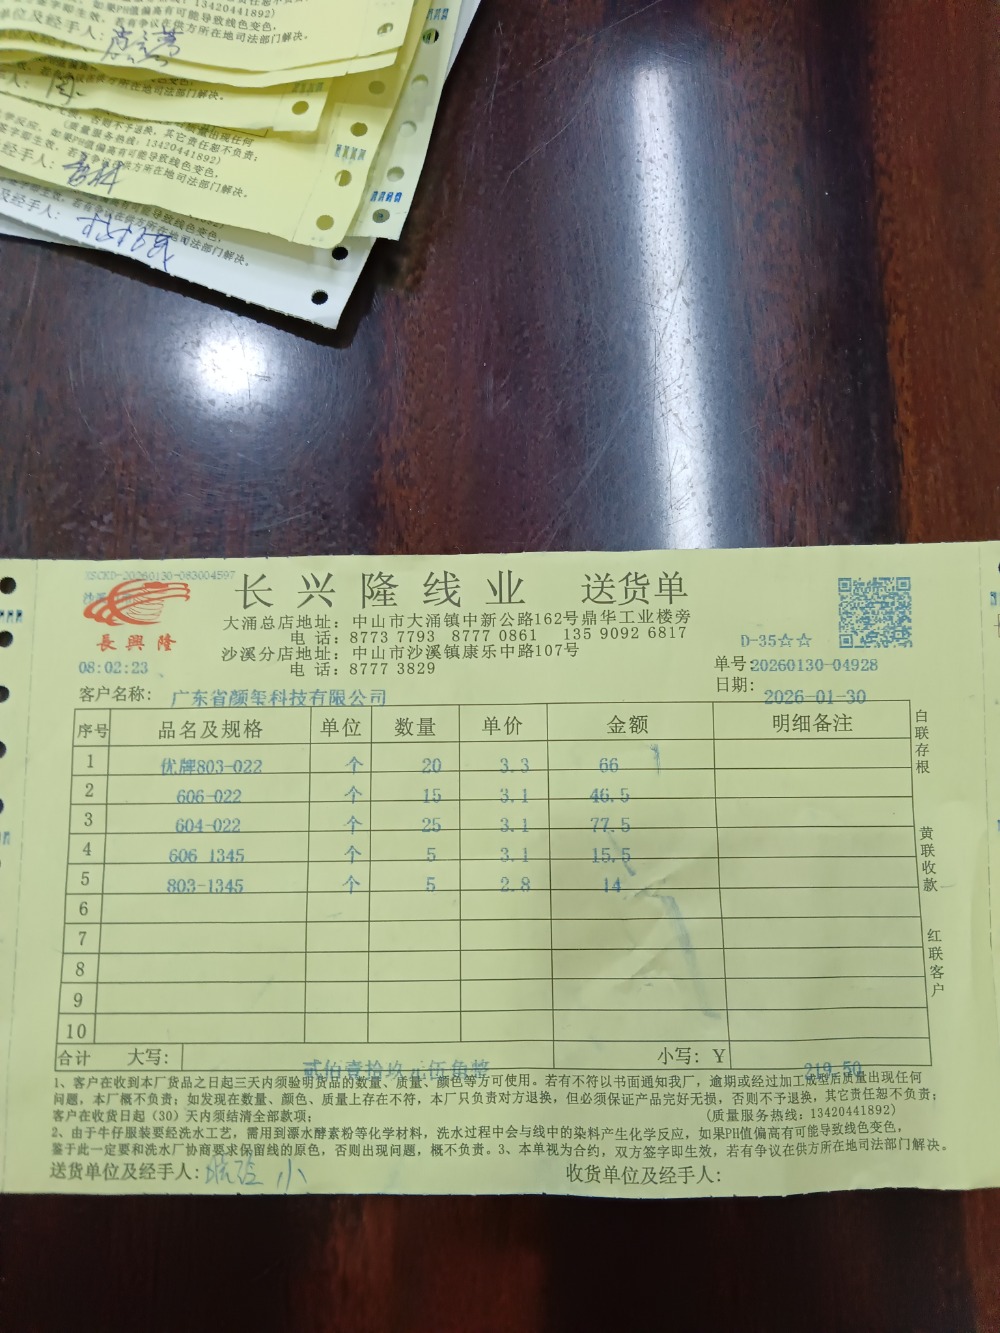 如果PH值偏高有可能导致线色变色,
签字即生效, 若有争议在供方所在地司法部门解决。
经手人:
(质量服务热线: 13420441892)
如果PH值偏高有可能导致线色变色,
签字即生效, 若有争议在供方所在地司法部门解决。
经手人:
及经手人:
XSCKD-20260130-083004597
長興隆
08:02:23
长兴隆线业 送货单
大涌总店地址: 中山市大涌镇中新公路162号鼎华工业楼旁
电 话: 8773 7793 8777 0861 135 9092 6817
沙溪分店地址: 中山市沙溪镇康乐中路107号
电 话: 8777 3829
D-35☆☆
单号:20260130-04928
日期: 2026-01-30
客户名称: 广东省颜玺科技有限公司
序号 品名及规格 单位 数量 单价 金额 明细备注
1 优牌803-022 个 20 3.3 66
2 606-022 个 15 3.1 46.5
3 604-022 个 25 3.1 77.5
4 606 1345 个 5 3.1 15.5
5 803-1345 个 5 2.8 14
6
7
8
9
10
合计 大写: 贰佰壹拾玖元伍角整 小写: Y 219.50
白联存根
黄联收款
红联客户
1、客户在收到本厂货品之日起三天内须验明货品的数量、质量、颜色等方可使用。若有不符以书面通知我厂, 逾期或经过加工成型后质量出现任何
问题, 本厂概不负责; 如发现在数量、颜色、质量上存在不符, 本厂只负责对方退换, 但必须保证产品完好无损, 否则不予退换, 其它责任恕不负责;
客户在收货日起（30）天内须结清全部款项; (质量服务热线: 13420441892)
2、由于牛仔服装要经洗水工艺, 需用到漂水酵素粉等化学材料, 洗水过程中会与线中的染料产生化学反应, 如果PH值偏高有可能导致线色变色,
鉴于此一定要和洗水厂协商要求保留线的原色, 否则出现问题, 概不负责。3、本单视为合约, 双方签字即生效, 若有争议在供方所在地司法部门解决。
送货单位及经手人: 小
收货单位及经手人: